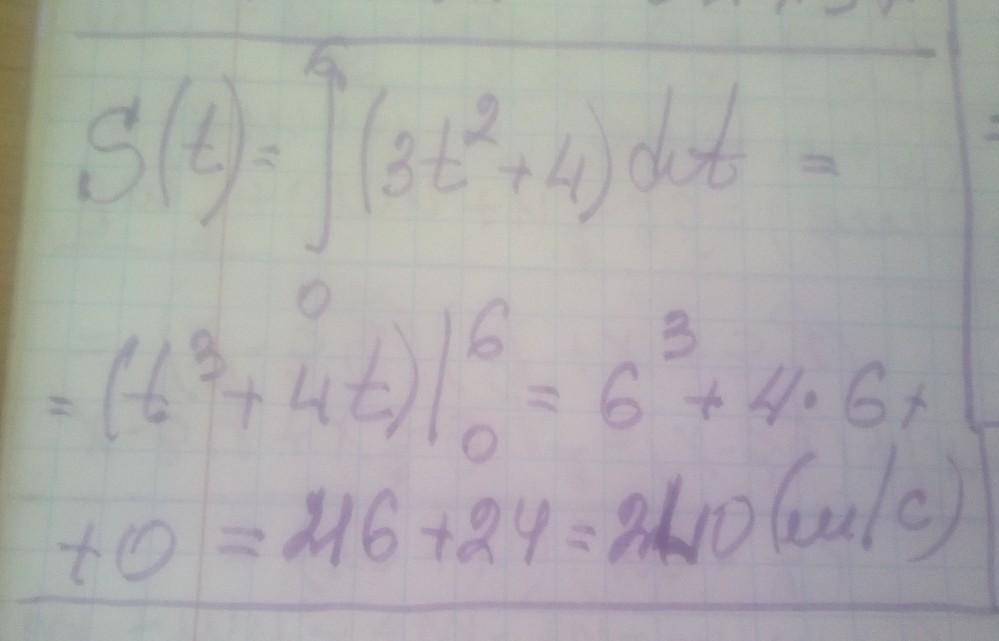 S(t) = ∫₀⁶ (3t² + 4) dt =
= (t³ + 4t) |₀⁶ = 6³ + 4 · 6 +
+ 0 = 216 + 24 = 240 (м/с)